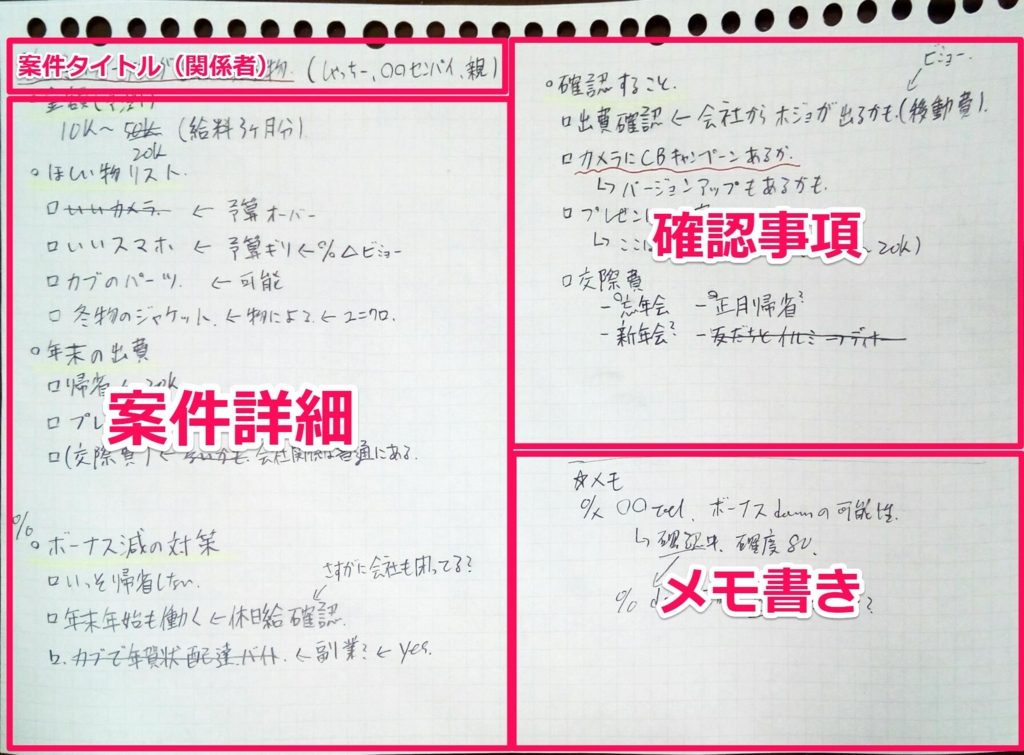 案件タイトル（関係者）
物. (しゃっちー, 〇〇センパイ, 親)
10K〜50K (給料3ヶ月分)
20K
ほしい物リスト.
□いいカメラ. ← 予算オーバー
□いいスマホ ← 予算ギリ ← % △ビョー
□カブのパーツ. ← 可能
□冬物のジャケット. ← 物による. ← ユニクロ.
年末の出費
□帰省 ← 20K
□プレ
案件詳細
□(交際費) ← 多いかも. 会社関係は普通にある.
%
ボーナス減の対策
□いっそ帰省しない.
さすがに会社も困ってる?
□年末年始も働く ← 休日給確認.
□. カブで年賀状配達バイト. ← 副業? ← yes.
確認すること.
ビョー.
□出費確認 ← 会社からホジョが出るかも.(移動費).
□カメラにCBキャンペーンあるか.
↳バージョンアップもあるかも.
□プレゼン
確認事項
↳ここ 〜20K)
□交際費
－忘年会 －正月帰省?
－新年会? －友だちと
☆メモ
% 〇〇 tel. ボーナスdownの可能性.
↳確認中. 確度80.
メモ書き
% ?